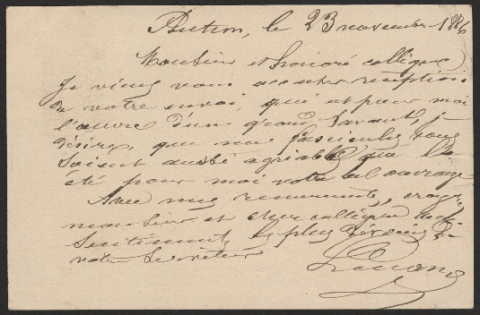 le 23 novembre 1886
Monsieur et honoré collègue
Je viens vous accuser réception
de votre envoi, qui est pour moi
l'œuvre d'un grand savant, je
désire, que mes fascicules vous
soient aussi agréable que l'a
été pour moi votre bel ouvrage.
Avec mes remerciements, croyez
monsieur et cher collègue aux
sentiments les plus dévoués de
votre serviteur